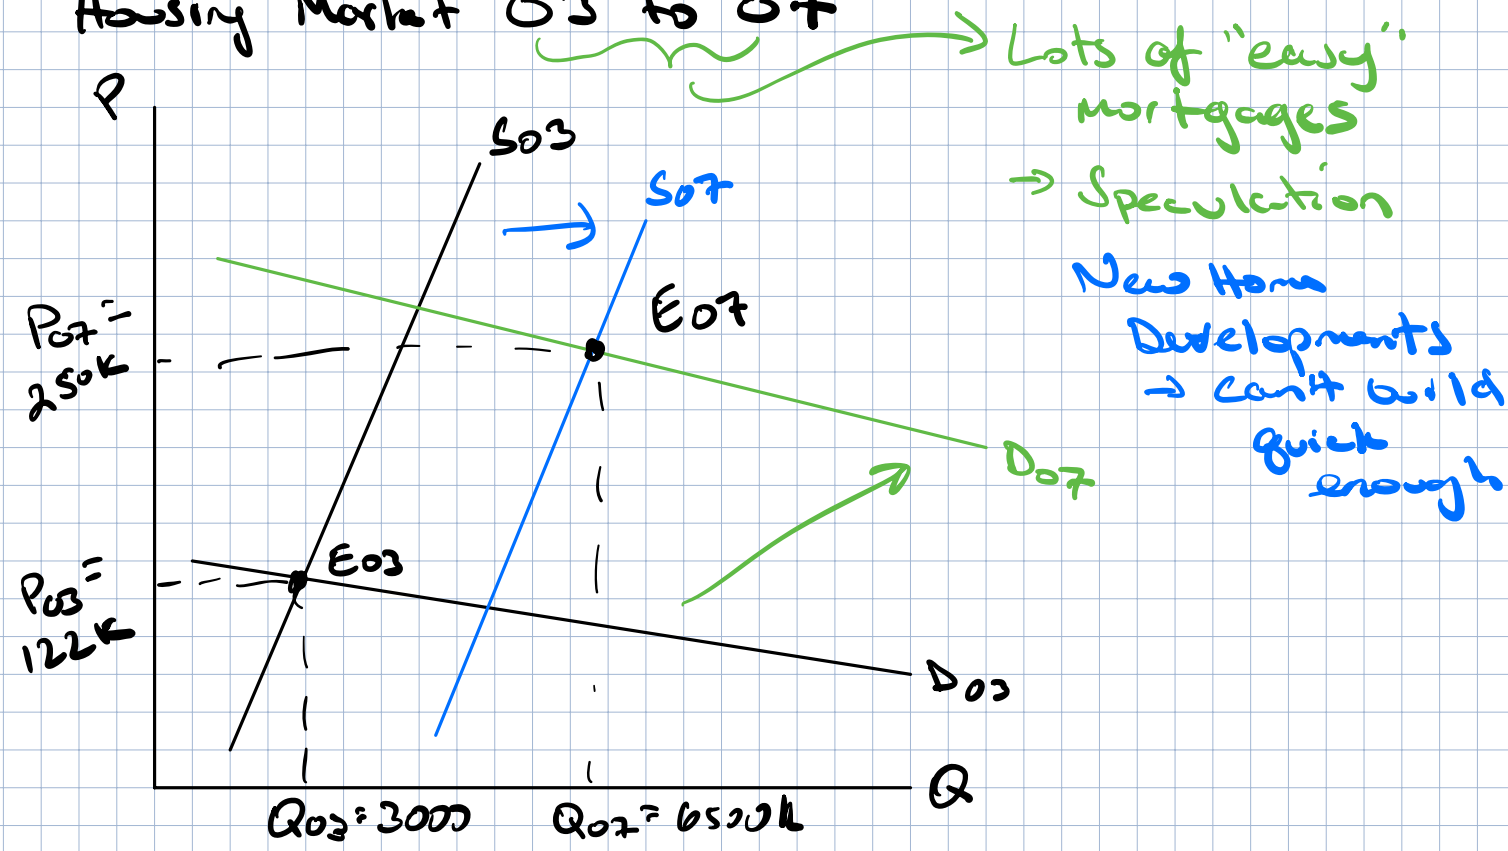 Housing Market 03 to 07
Lots of "easy"
mortgages
→ Speculation
P
S03
S07
New Home
Developments
→ can't build
quick
enough
P07 =
250K
E07
D07
E03
P03 =
122K
D03
Q
Q03 = 3000
Q07 = 6500k